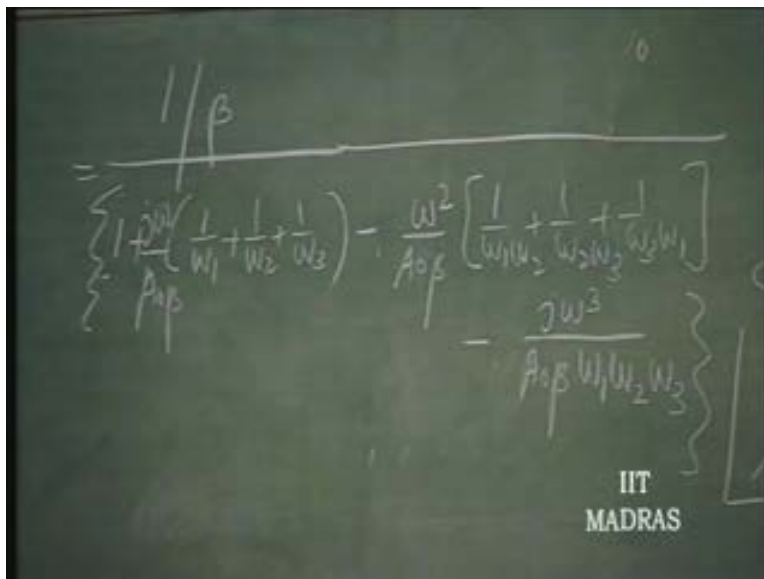 10
1/β
=
{1 + jω/A₀β (1/ω₁ + 1/ω₂ + 1/ω₃) - ω²/A₀β [1/ω₁ω₂ + 1/ω₂ω₃ + 1/ω₃ω₁]
- jω³/A₀β ω₁ω₂ω₃}
IIT
MADRAS